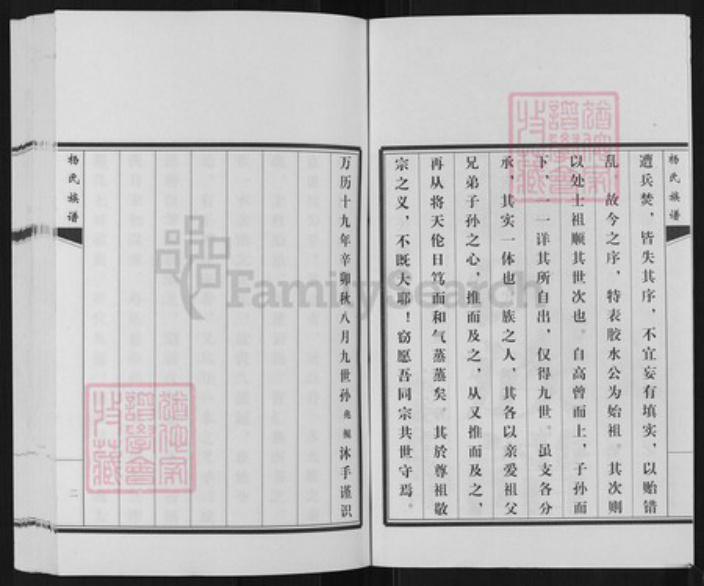 杨氏族谱
遭兵焚，皆失其序，不宜妄有填实，以贻错
乱，故今之序，特表胶水公为始祖，其次则
以处士祖顺其世次也。自高曾而上，子孙而
下，一一详其所自出，仅得九世。虽支各分
承，其实一体也，族之人，其各以亲爱祖父
兄弟子孙之心，推而及之，从又推而及之，
再从将天伦日笃而和气蒸蒸矣。其於尊祖敬
宗之义，不既大耶！窃愿吾同宗共世守焉。
万历十九年辛卯秋八月九世孙 沐手谨识
杨氏族谱
二
FamilySearch